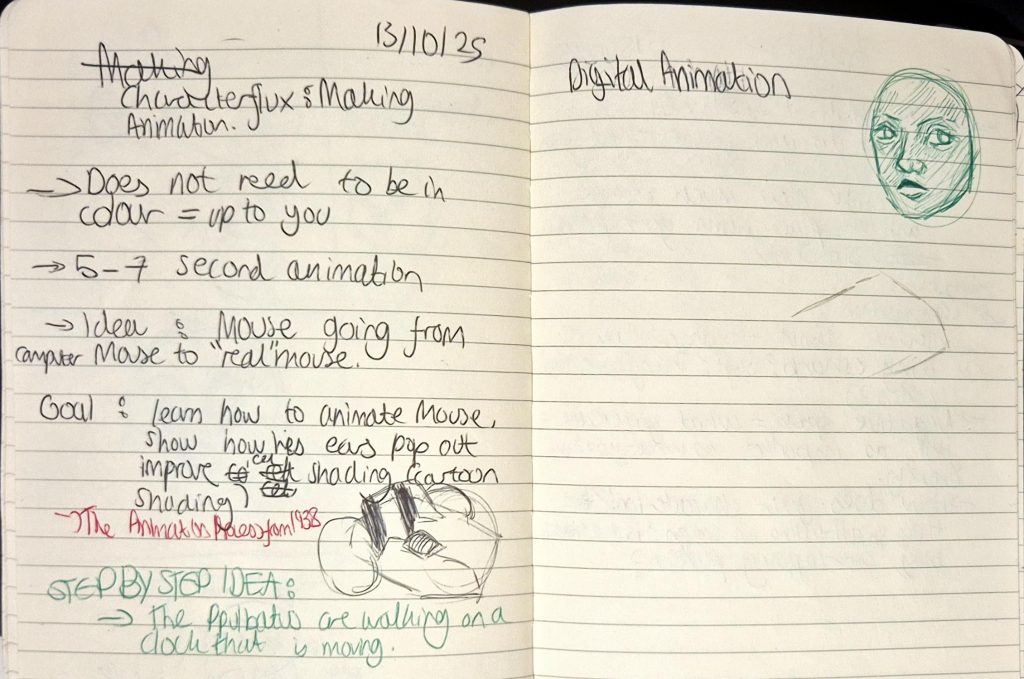 13/10/25
Making
Characterflux : Making
Animation.
→ Does not need to be in
colour = up to you
→ 5-7 second animation
→ Idea : Mouse going from
computer Mouse to "real" mouse.
Goal : learn how to animate Mouse,
show how his ears pop out
improve cel shading (cartoon
shading)
→ The Animation Process from 1938
STEP BY STEP IDEA :
→ The are walking on a
clock that is moving.
Digital Animation